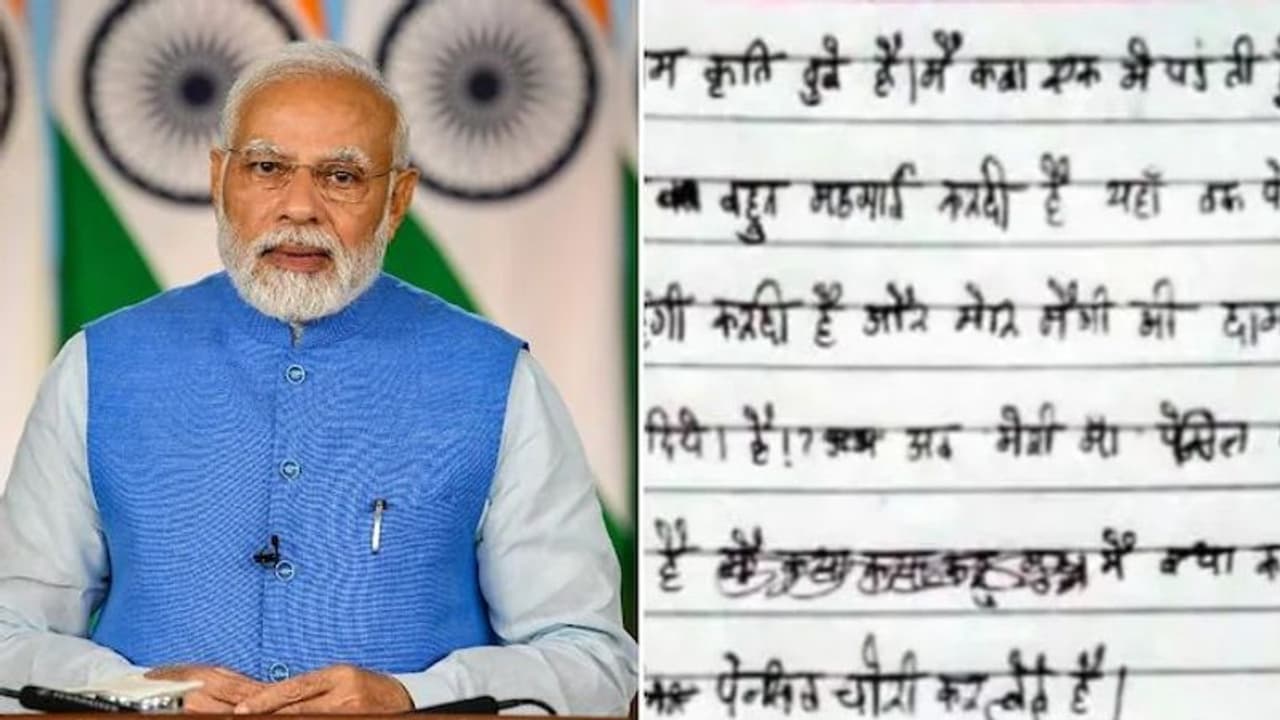 म कृति दुबे है।मैं कक्षा एक मे पडंती
बहुत महगाई करदी है यहाँ तक पे
गी करदी है और मेरि मैगी भी दाम
दिये। है!? अब मेरी मा पेंसिल
है मैं क्या क
पेन्सिल चोरी कर लेते है।